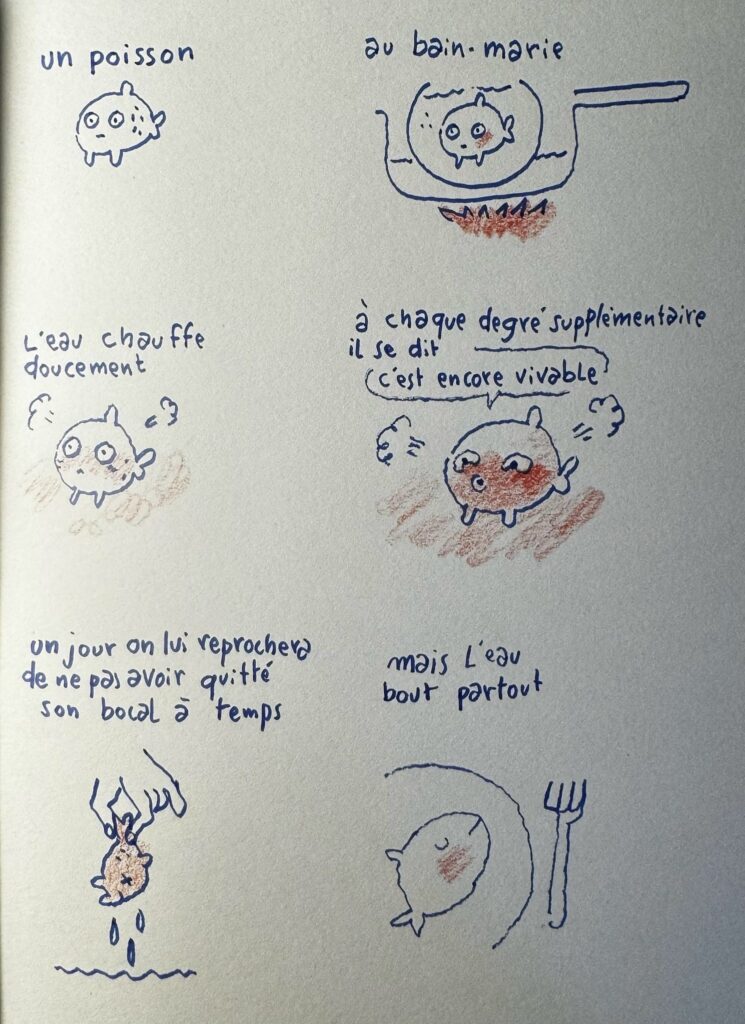 un poisson
au bain-marie
L'eau chauffe
doucement
à chaque degré supplémentaire
il se dit
c'est encore vivable
un jour on lui reprochera
de ne pas avoir quitté
son bocal à temps
mais L'eau
bout partout